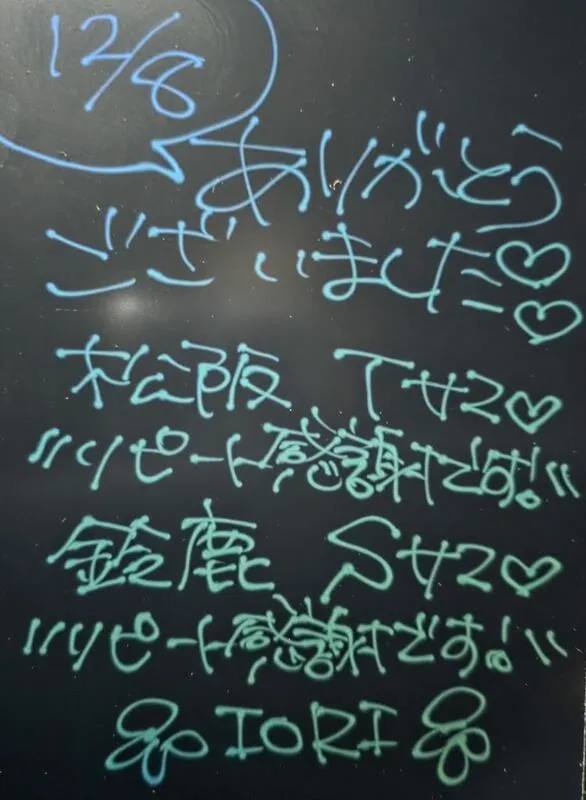 12/8
ありがとう
ございました♡♡
松阪 Tサマ♡
〃リピート感謝です!〃
鈴鹿 Sサマ♡
〃リピート感謝です!〃
IORI